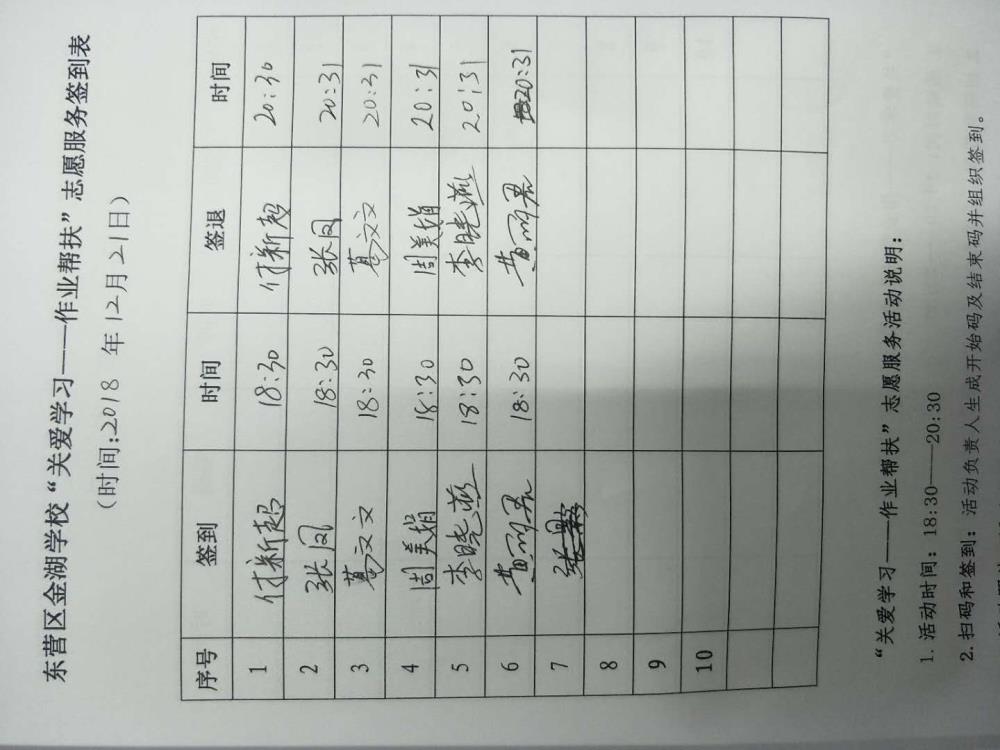 东营区金湖学校“关爱学习——作业帮扶”志愿服务签到表
（时间:2018 年12月21日）
序号 签到 时间 签退 时间
1 付新超 18:30 付新超 20:30
2 张凤 18:30 张凤 20:31
3 葛文文 18:30 葛文文 20:31
4 周美娟 18:30 周美娟 20:31
5 李晓燕 18:30 李晓燕 20:31
6 黄 18:30 黄 20:31
7
8
9
10
“关爱学习——作业帮扶”志愿服务活动说明：
1. 活动时间：18:30——20:30
2. 扫码和签到：活动负责人生成开始码及结束码并组织签到。